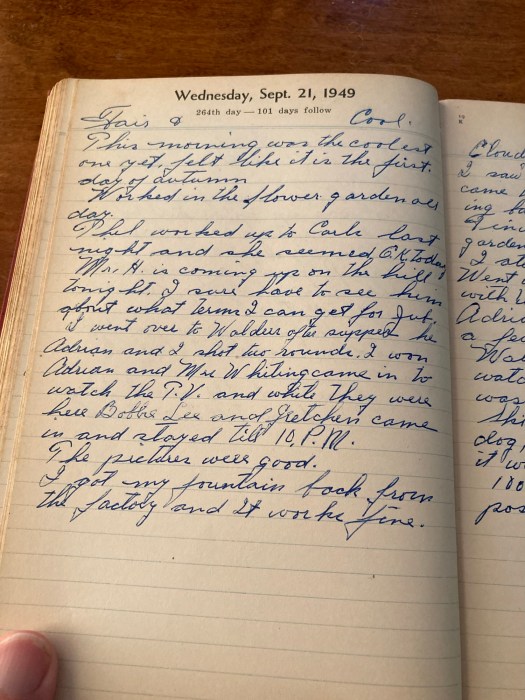 Wednesday, Sept. 21, 1949
264th day — 101 days follow
Fair & Cool.
This morning was the coolest
one yet, felt like it is the first
day of autumn
Worked in the flower garden all
day.
Phil worked up to Carls last
night and she seemed O.K. today
Mr. H. is coming up on the hill
tonight. I sure have to see him
about what term I can get for
I went over to after supper he
Adrian and I shot two rounds. I won
Adrian and Mrs Whiting came in to
watch the T.V. and while they were
here Bobbie Lee and Gretchen came
in and stayed till 10, P.M.
The pictures were good.
I got my fountain back from
the factory and It works fine.
Cloud
I saw
came
ing
garden
I
Went
with
Adria
a fe
Wa
watc
was
ski
dog,
it w
100
pos